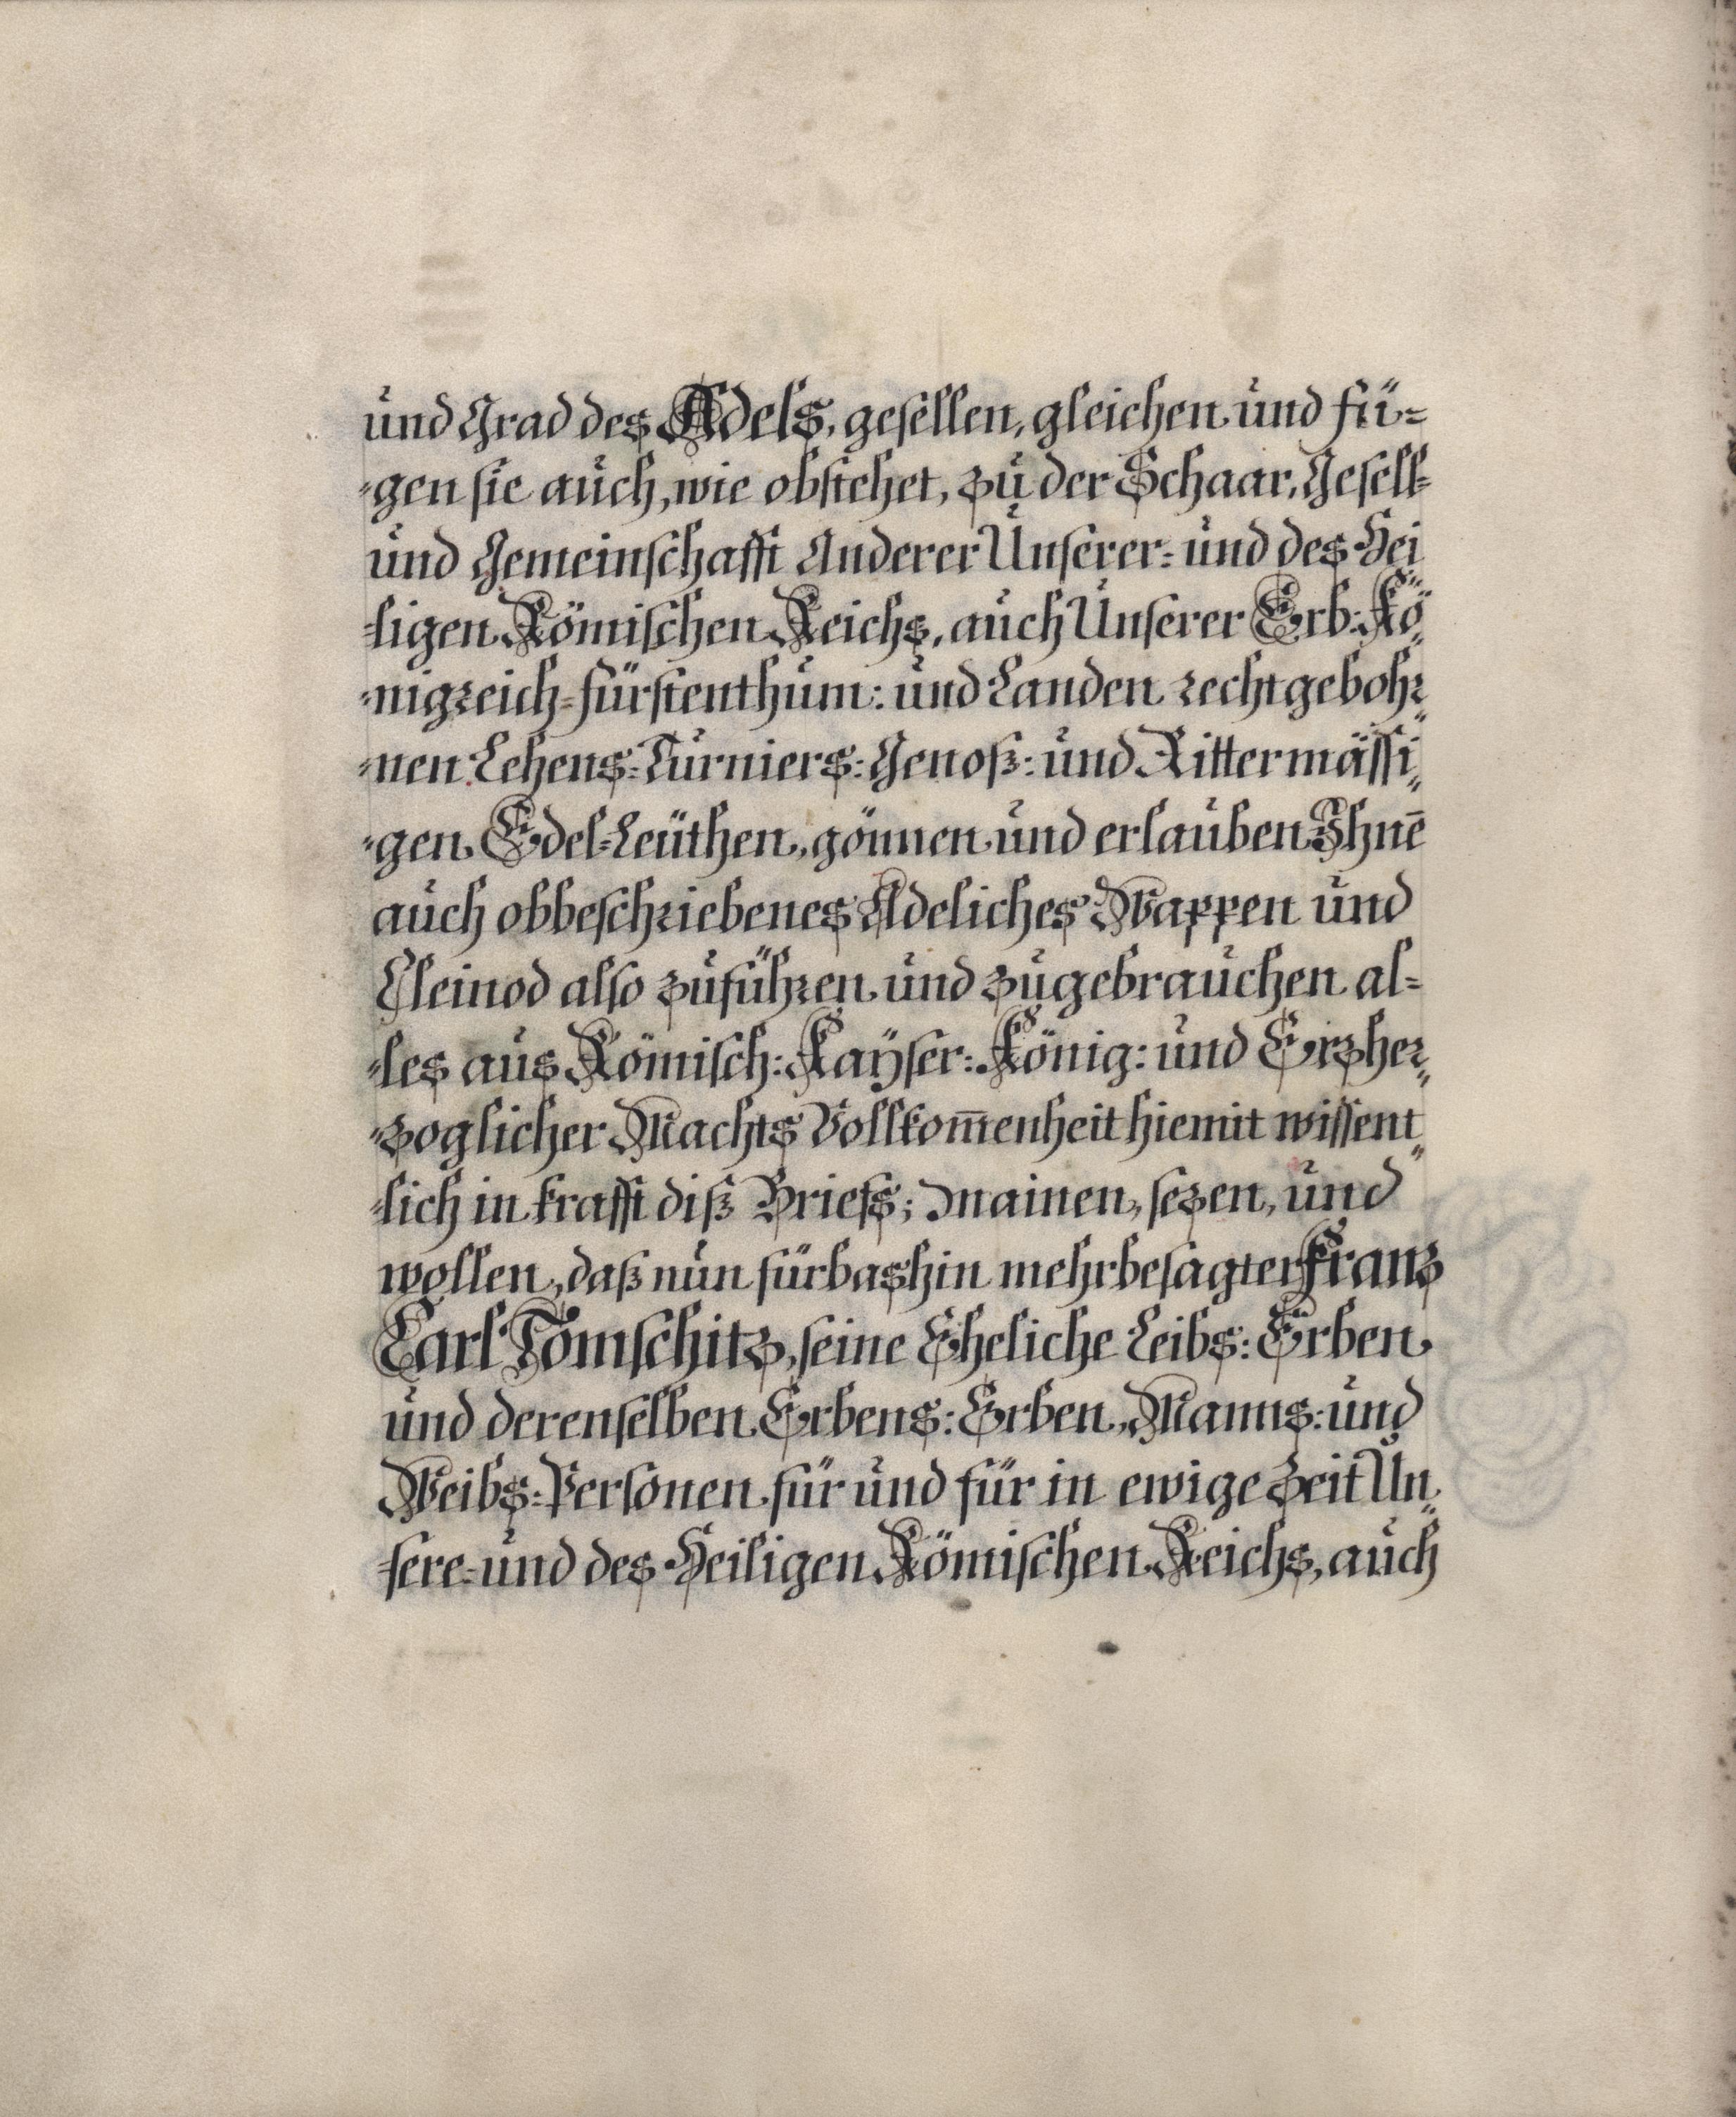 und Grad des Adels, gesellen, gleichen und fü=
=gen sie auch, wie obstehet, zu der Schaar, Gesell=
und Gemeinschafft Anderer Unserer= und des Hei
=ligen Römischen Reichs, auch Unserer Erb: Kö=
=nigreich=fürstenthum: und Landen rechtgebohr
=nen Lehens=Turniers: Genoß: und Rittermässi=
=gen Edel=Leüthen, gönnen und erlauben Ihnē
auch obbeschriebenes Adeliches Wappen und
Cleinod also zuführen und zugebrauchen al=
=les aus Römisch: Kaÿser: König: und Erzher=
=zoglicher Machts Vollkom̄enheit hiemit wissent=
=lich in krafft diß Briefs; mainen, sezen, und
wollen, daß nun fürbashin mehrbesagter Franz
Carl Tomschitz, seine Eheliche Leibs: Erben
und derenselben Erbens: Erben, Manns: und
Weibs=Personen für und für in ewige Zeit Un=
=sere= und des Heiligen Römischen Reichs, auch